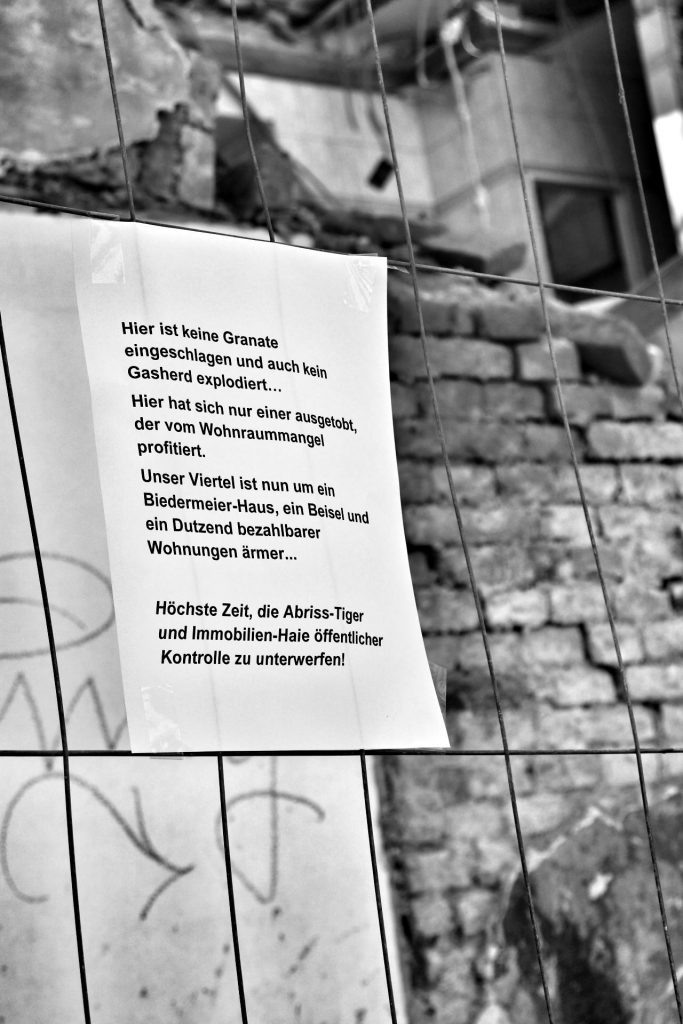 Hier ist keine Granate
eingeschlagen und auch kein
Gasherd explodiert...
Hier hat sich nur einer ausgetobt,
der vom Wohnraummangel
profitiert.
Unser Viertel ist nun um ein
Biedermeier-Haus, ein Beisel und
ein Dutzend bezahlbarer
Wohnungen ärmer...
Höchste Zeit, die Abriss-Tiger
und Immobilien-Haie öffentlicher
Kontrolle zu unterwerfen!